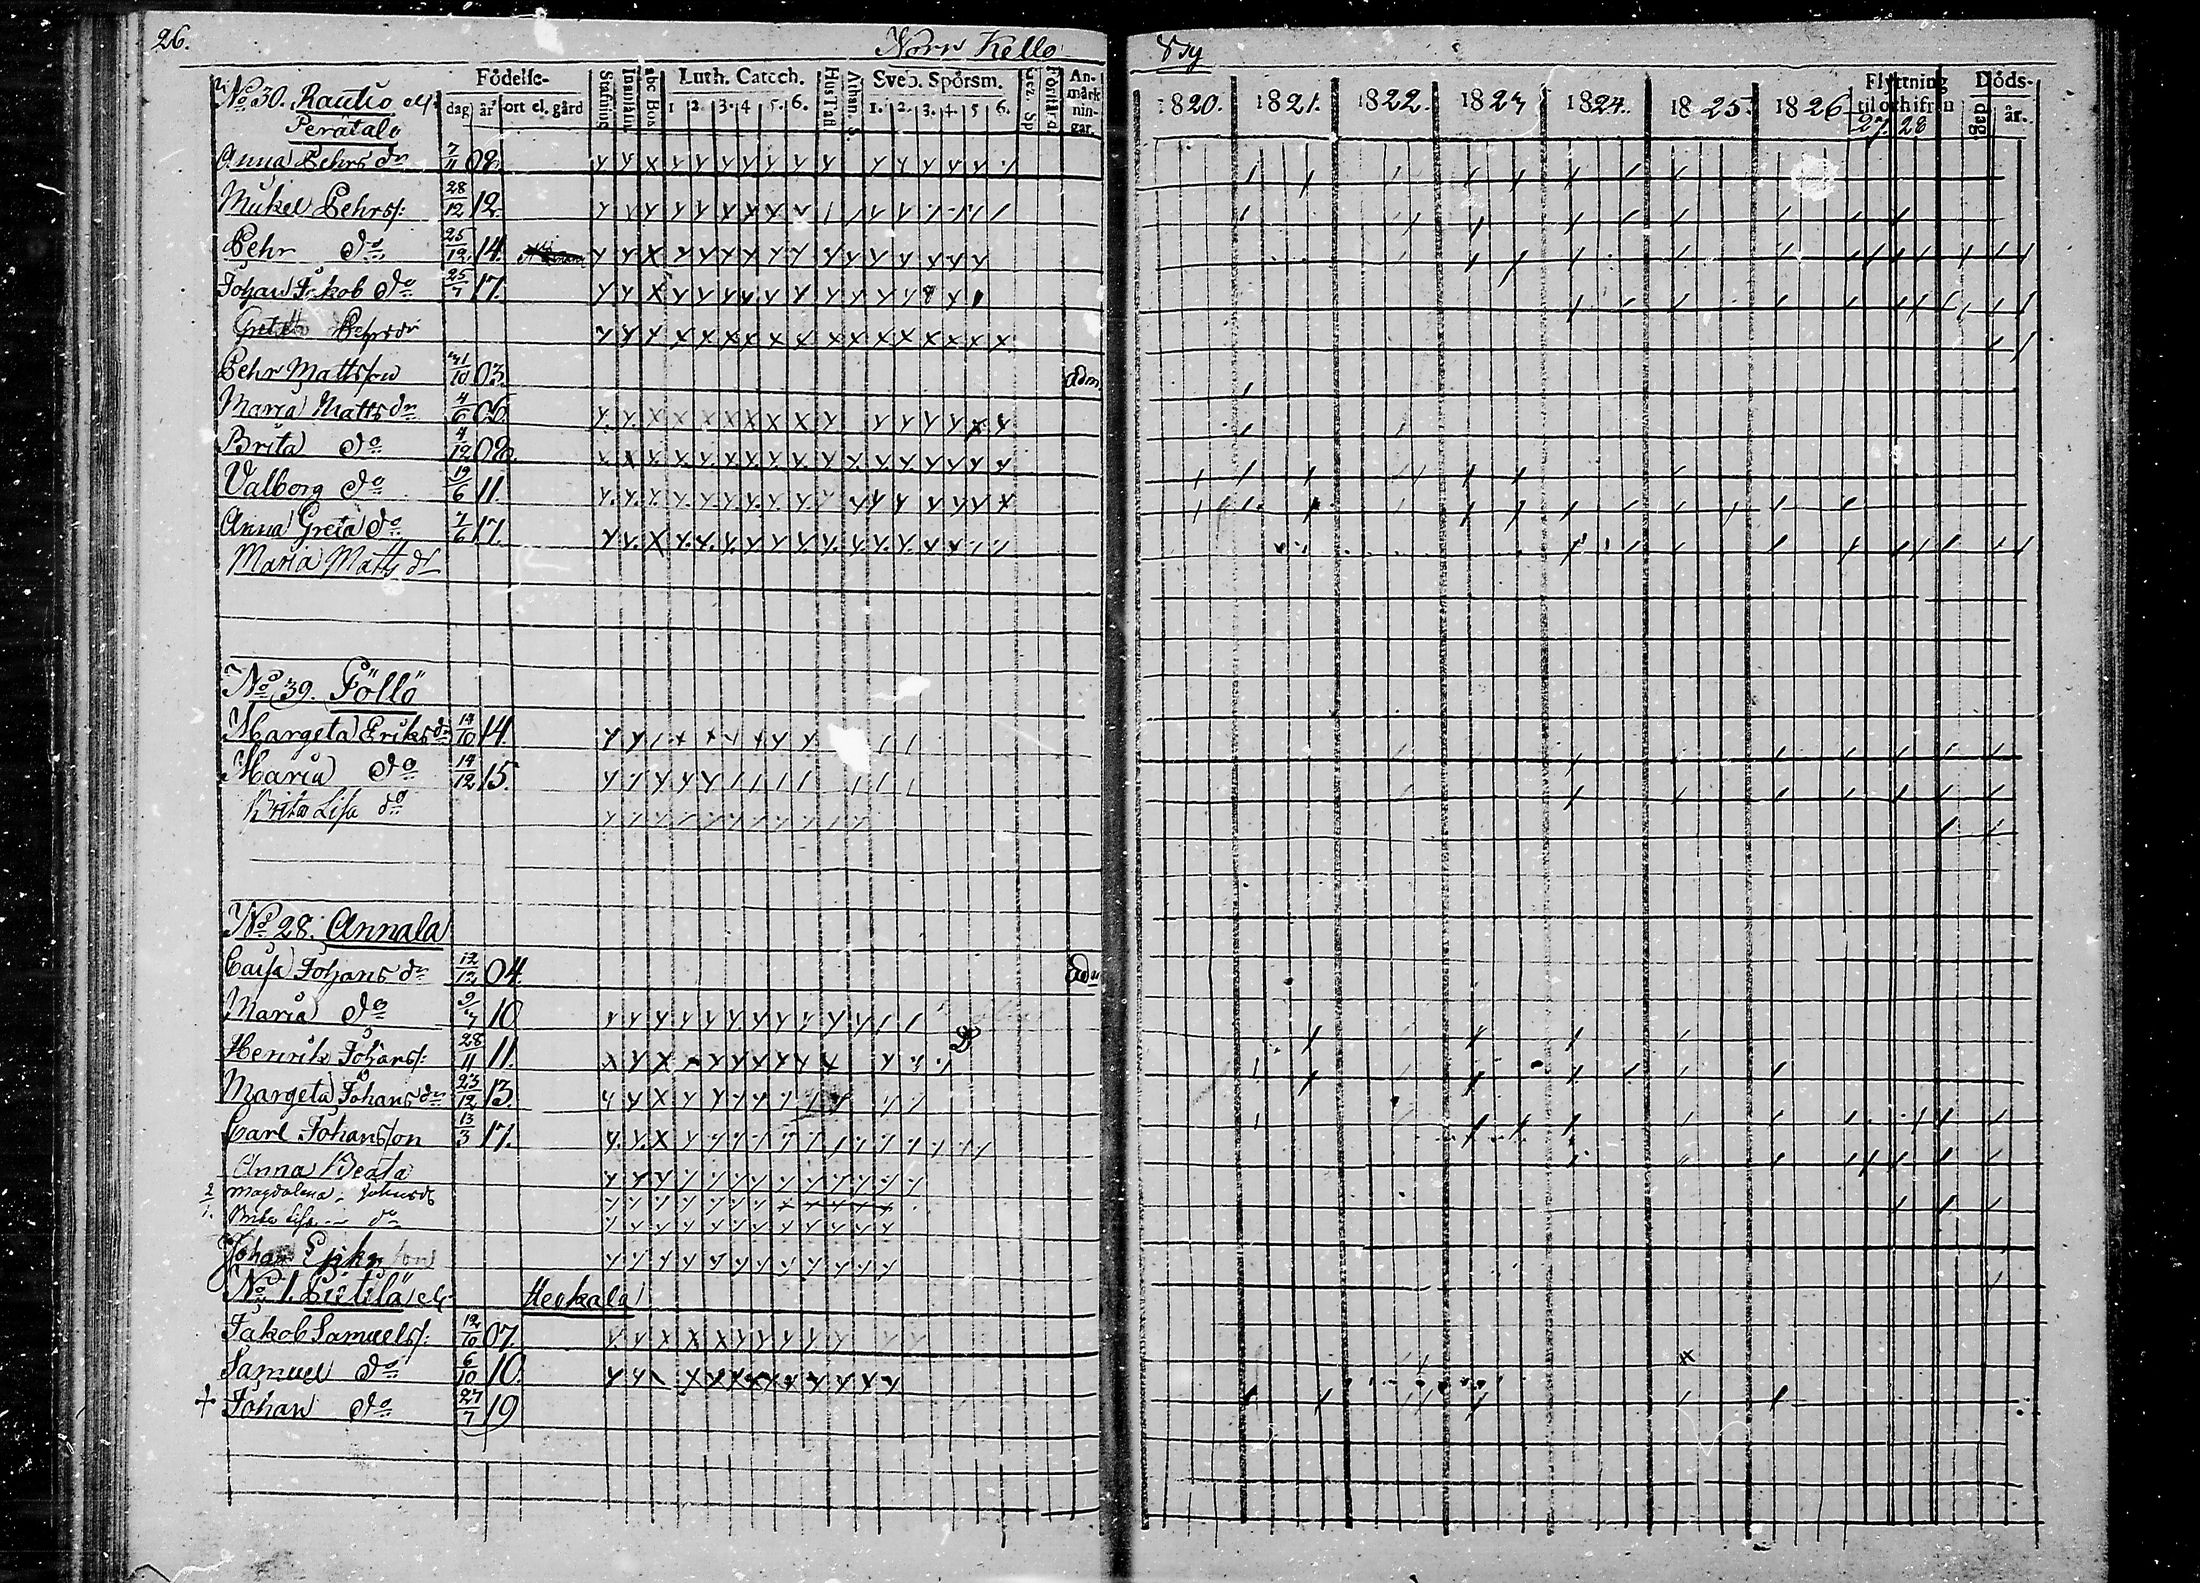 26. Norr Kello
By
Födelse- Luth. Catech. Sveb. Spörsm. An-märk-nin-gar.
dag år ort el. gård Stafning Innanläsn. abc Bok 1 2. 3. 4 5. 6. Hus Tafl Athan. S. 1. 2. 3. 4. 5 6.
1820. 1821. 1822. 1823 1824. 1825. 1826 Flyttning til och ifrån 27. 28 Döds- dag. år.
No 30. Rautio el.
Perätalo
Anna Pehrs dr 7/11 08.
Mickel Pehrs s: 28/12 12.
Pehr do 25/12 14.
Johan Jakob do 25/7 17.
Greta Pehrsdr
Pehr Mattsson 31/10 03. Adm
Maria Matts dr 4/6 06
Brita do 4/12 08.
Valborg do 19/6 11.
Anna Greta do 7/6 17.
Maria Matts dr
No 39. Föllö
Margeta Eriks dr 14/10 14.
Maria do 14/12 15.
Brita Lisa do
No 28. Annala
Caisa Johans dr 12/12 04. Adm
Maria do 9/7 10
Henrik Johans s: 28/11 11.
Margeta Johans dr 23/12 13.
Carl Johansson 13/3 17.
Anna Beata
2 Magdalena Johansdr
1. Brita Lisa do
Johan
No 1. Pietilä el. Heokala
Jakob Samuels s: 12/10 07.
Samuel do 6/10 10.
+ Johan do 27/7 19